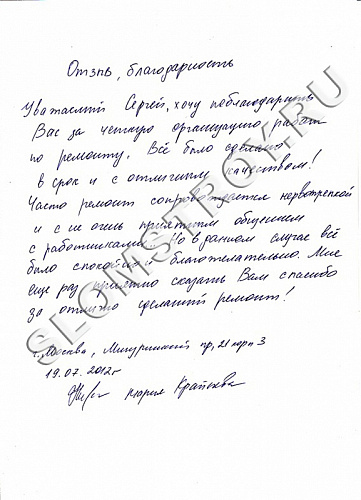 Отзыв, благодарность
Уважаемый Сергей, хочу поблагодарить
Вас за четкую организацию работ
по ремонту. Всё было сделано
в срок и с отличным качеством!
Часто ремонт сопровождается нервотрепкой
и с не очень приятным общением
с работниками. Но в данном случае всё
было спокойно и благожелательно. Мне
еще раз приятно сказать Вам спасибо
за отлично сделанный ремонт!
г. Москва, Мичуринский пр, 21 корп 3
19.07.2012г
Мария
SLOMSTROY.RU